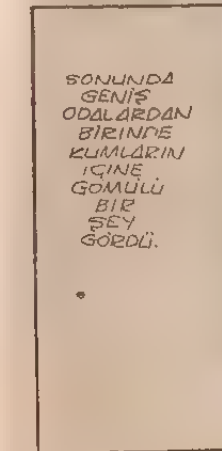 SONUNDA
GENİŞ
ODALARDAN
BİRİNDE
KUMLARIN
İÇİNE
GÖMÜLÜ
BİR
ŞEY
GÖRDÜ.